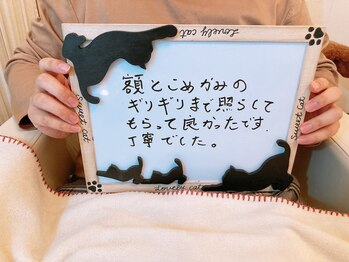 Lovely cat
額とこめかみの
ギリギリまで照らして
もらって良かったです.
丁寧でした。
Sweet Cat
Sweet Cat
Lovely cat